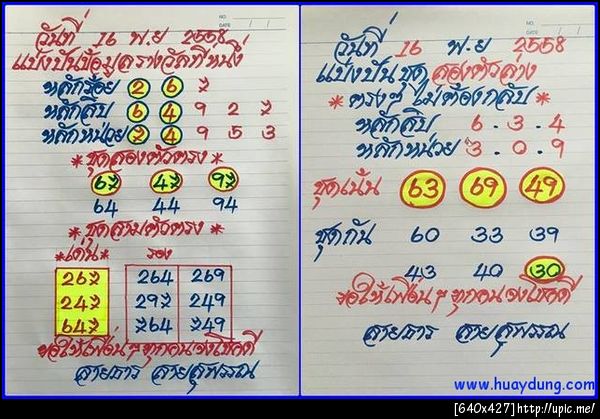 NO.
DATE / /
วันที่ 16 พ.ย 2558
แบ่งปันข้อมูลรางวัลที่หนึ่ง
หลักร้อย 2 6 7
หลักสิบ 6 4 9 2 7
หลักหน่วย 7 4 9 5 3
*ชุดสองตัวตรง*
67 47 97
64 44 94
*ชุดสามตัวตรง*
*เด่น* รอง
267 264 269
247 297 249
647 764 749
ขอให้เพื่อนๆทุกคนจงโชคดี
สายธาร สายสุพรรณ
NO.
DATE / /
วันที่ 16 พ.ย 2558
แบ่งปันชุดสองตัวล่าง
*ตรงๆไม่ต้องกลับ*
หลักสิบ 6.3.4
หลักหน่วย 3.0.9
ชุดเน้น 63 69 49
ชุดกัน 60 33 39
43 40 30
ขอให้เพื่อนๆทุกคนจงโชคดี
สายธาร สายสุพรรณ
www.huaydung.com
[640x427]http://upic.me/